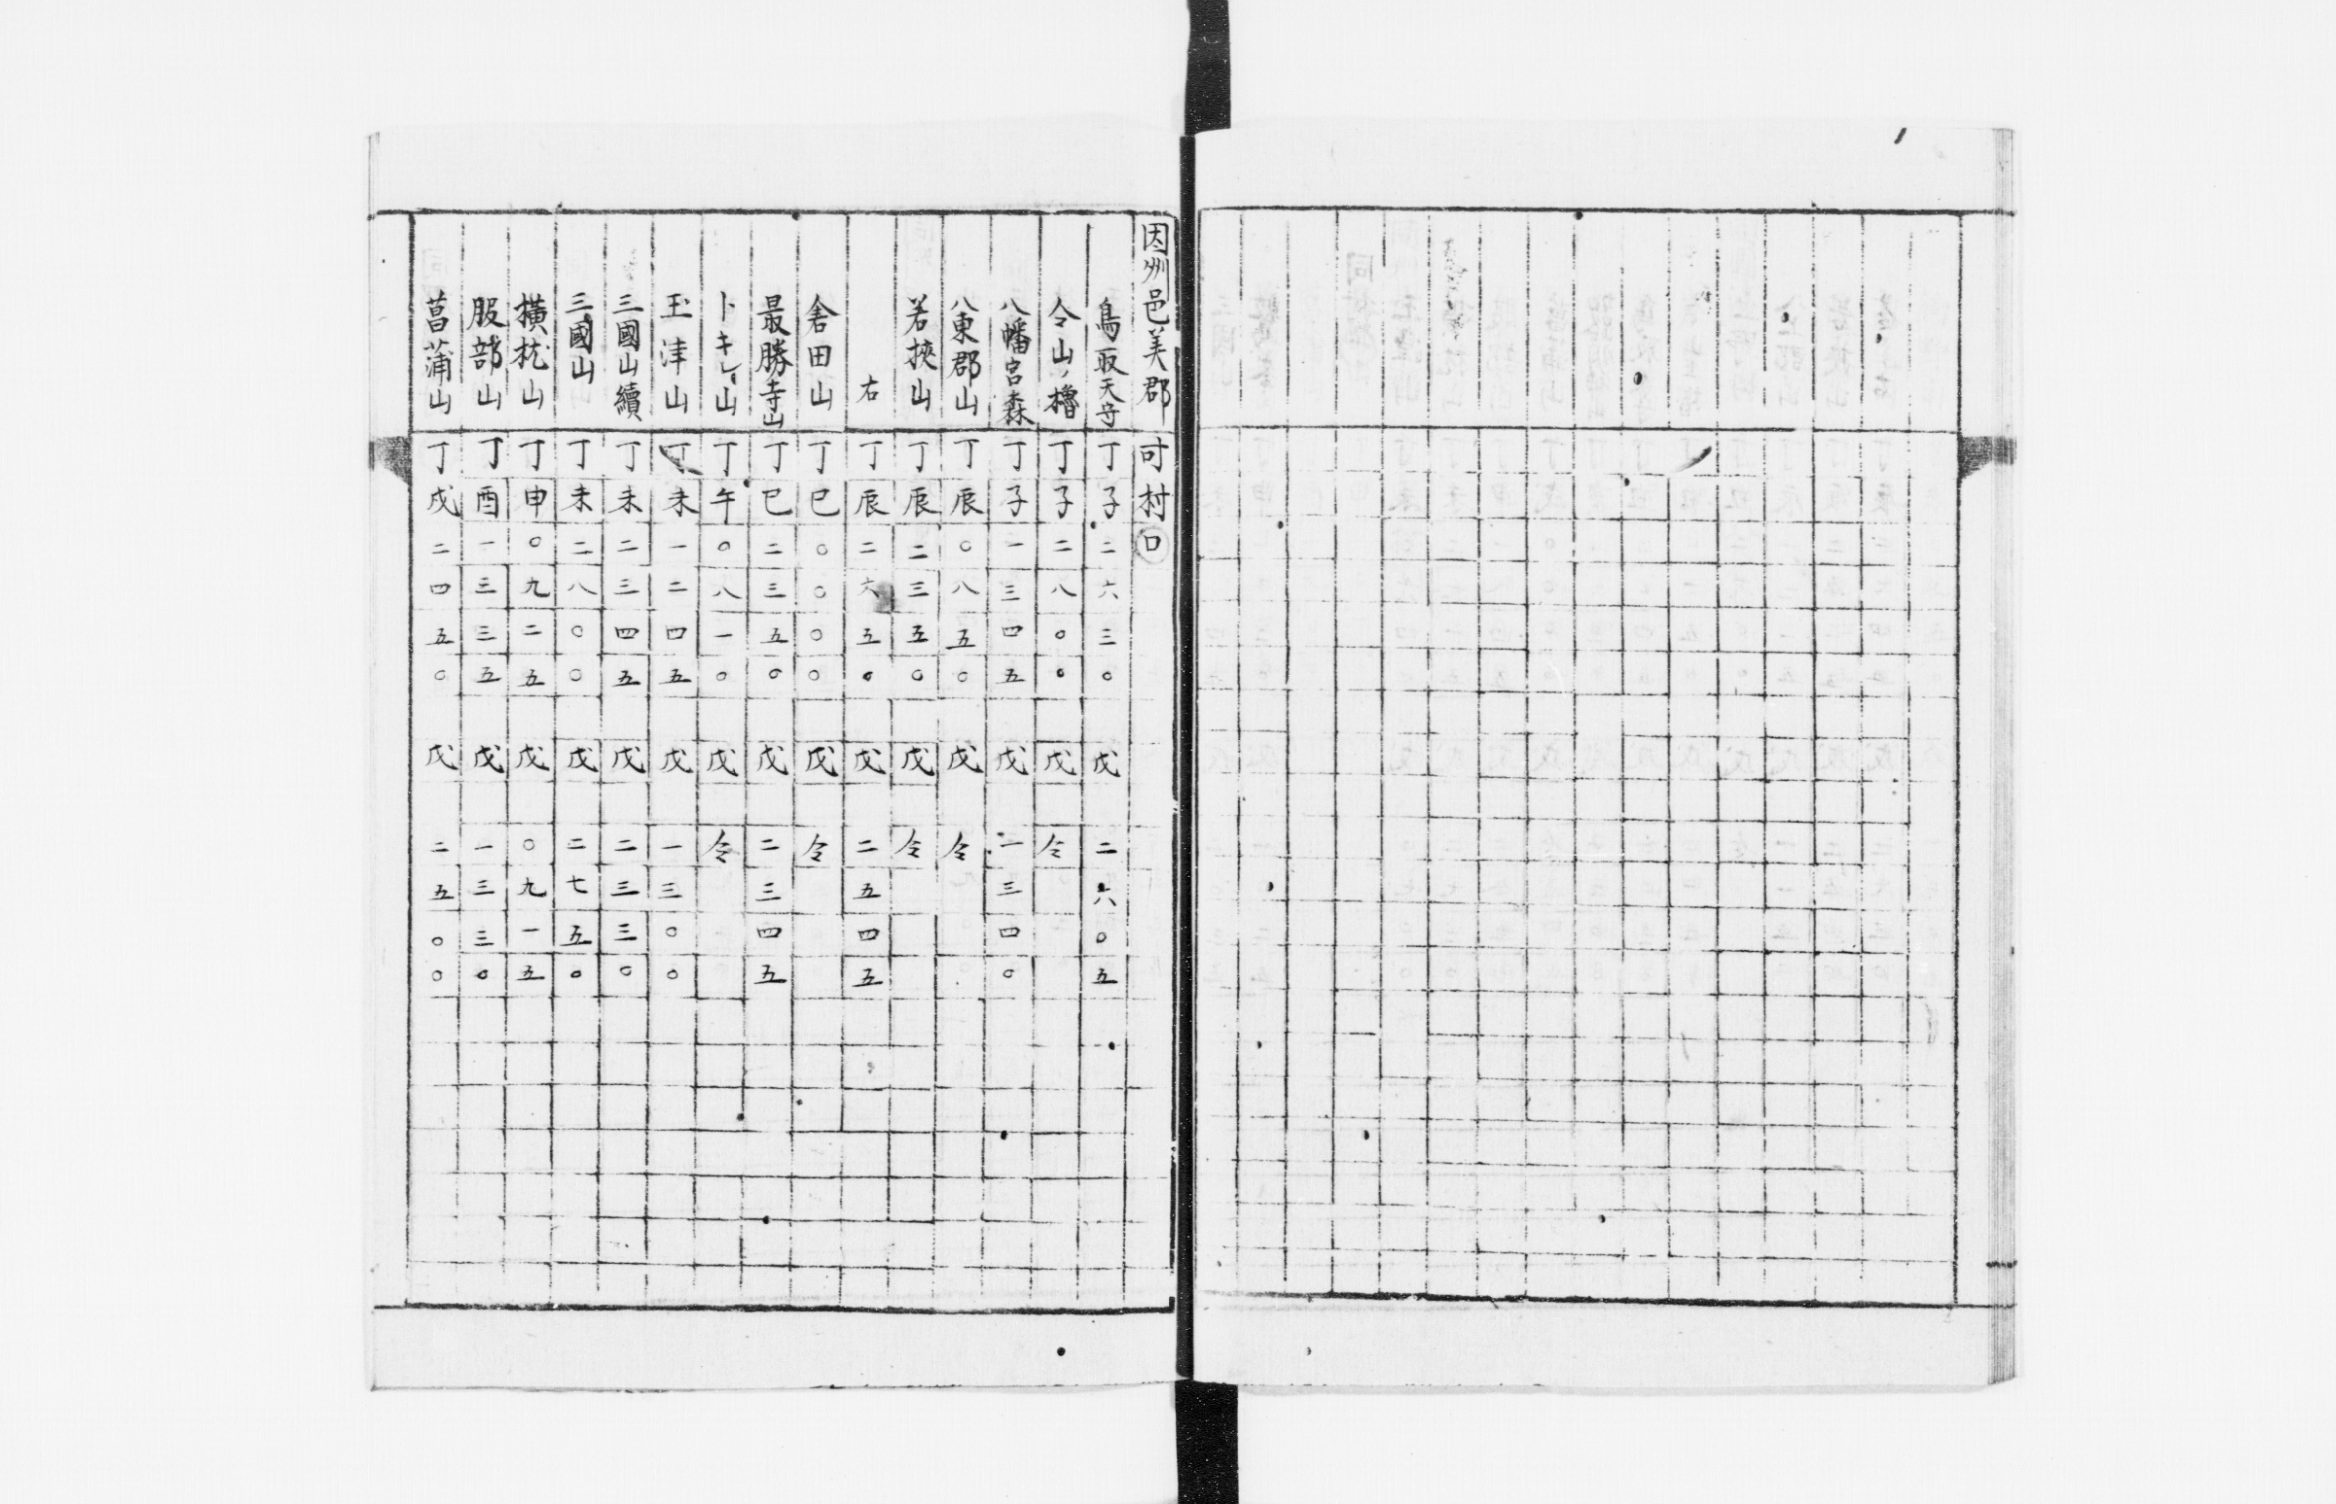 因州邑美郡 可村 口
鳥取天守 丁子二六三〇 戊 二六〇五
仝山ノ櫓 丁子二八〇〇 戊 仝
八幡宮森 丁子一三四五 戊 一三四〇
八東郡山 丁辰〇八五〇 戊 仝
若挾山 丁辰二三五〇 戊 仝
右 丁辰二六五〇 戊 二五四五
舎田山 丁巳〇〇〇〇 戊 仝
最勝寺山 丁巳二三五〇 戊 二三四五
トキレイ山 丁午〇八一〇 戊 仝
玉津山 丁未一二四五 戊 一三〇〇
三國山續 丁未二三四五 戊 二三三〇
三國山 丁未二八〇〇 戊 二七五〇
横枕山 丁申〇九二五 戊 〇九一五
服部山 丁酉一三三五 戊 一三三〇
菖蒲山 丁戌二四五〇 戊 二五〇〇